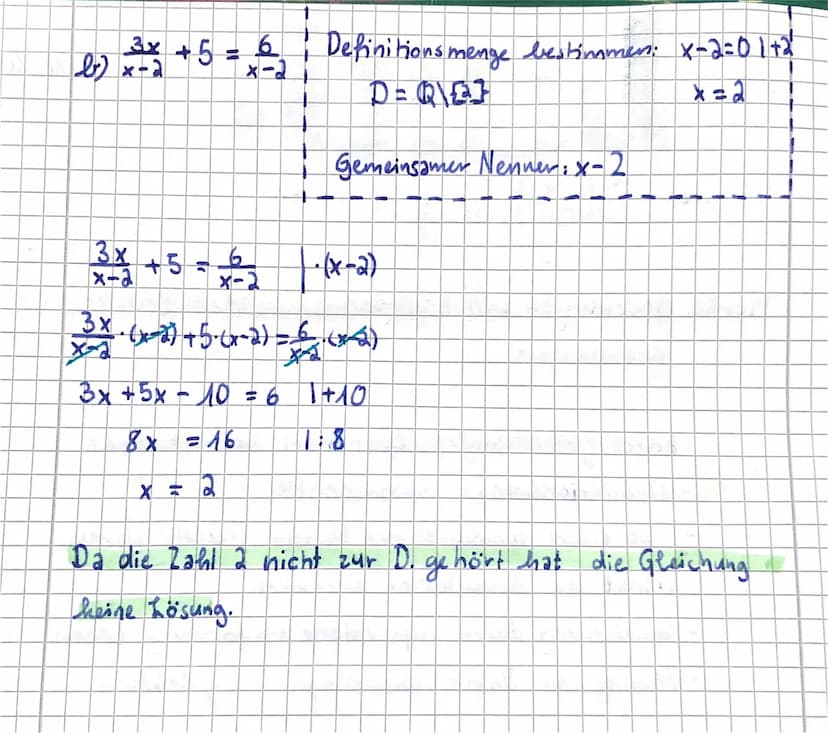 b) 3x/(x-2) + 5 = 6/(x-2)
Definitionsmenge bestimmen: x-2=0 |+2
D = ℚ\{2} x = 2
Gemeinsamer Nenner: x-2
3x/(x-2) + 5 = 6/(x-2) | ·(x-2)
3x/(x-2) ·(x-2) + 5·(x-2) = 6/(x-2) ·(x-2)
3x + 5x - 10 = 6 |+10
8x = 16 |:8
x = 2
Da die Zahl 2 nicht zur D. gehört hat die Gleichung
keine Lösung.